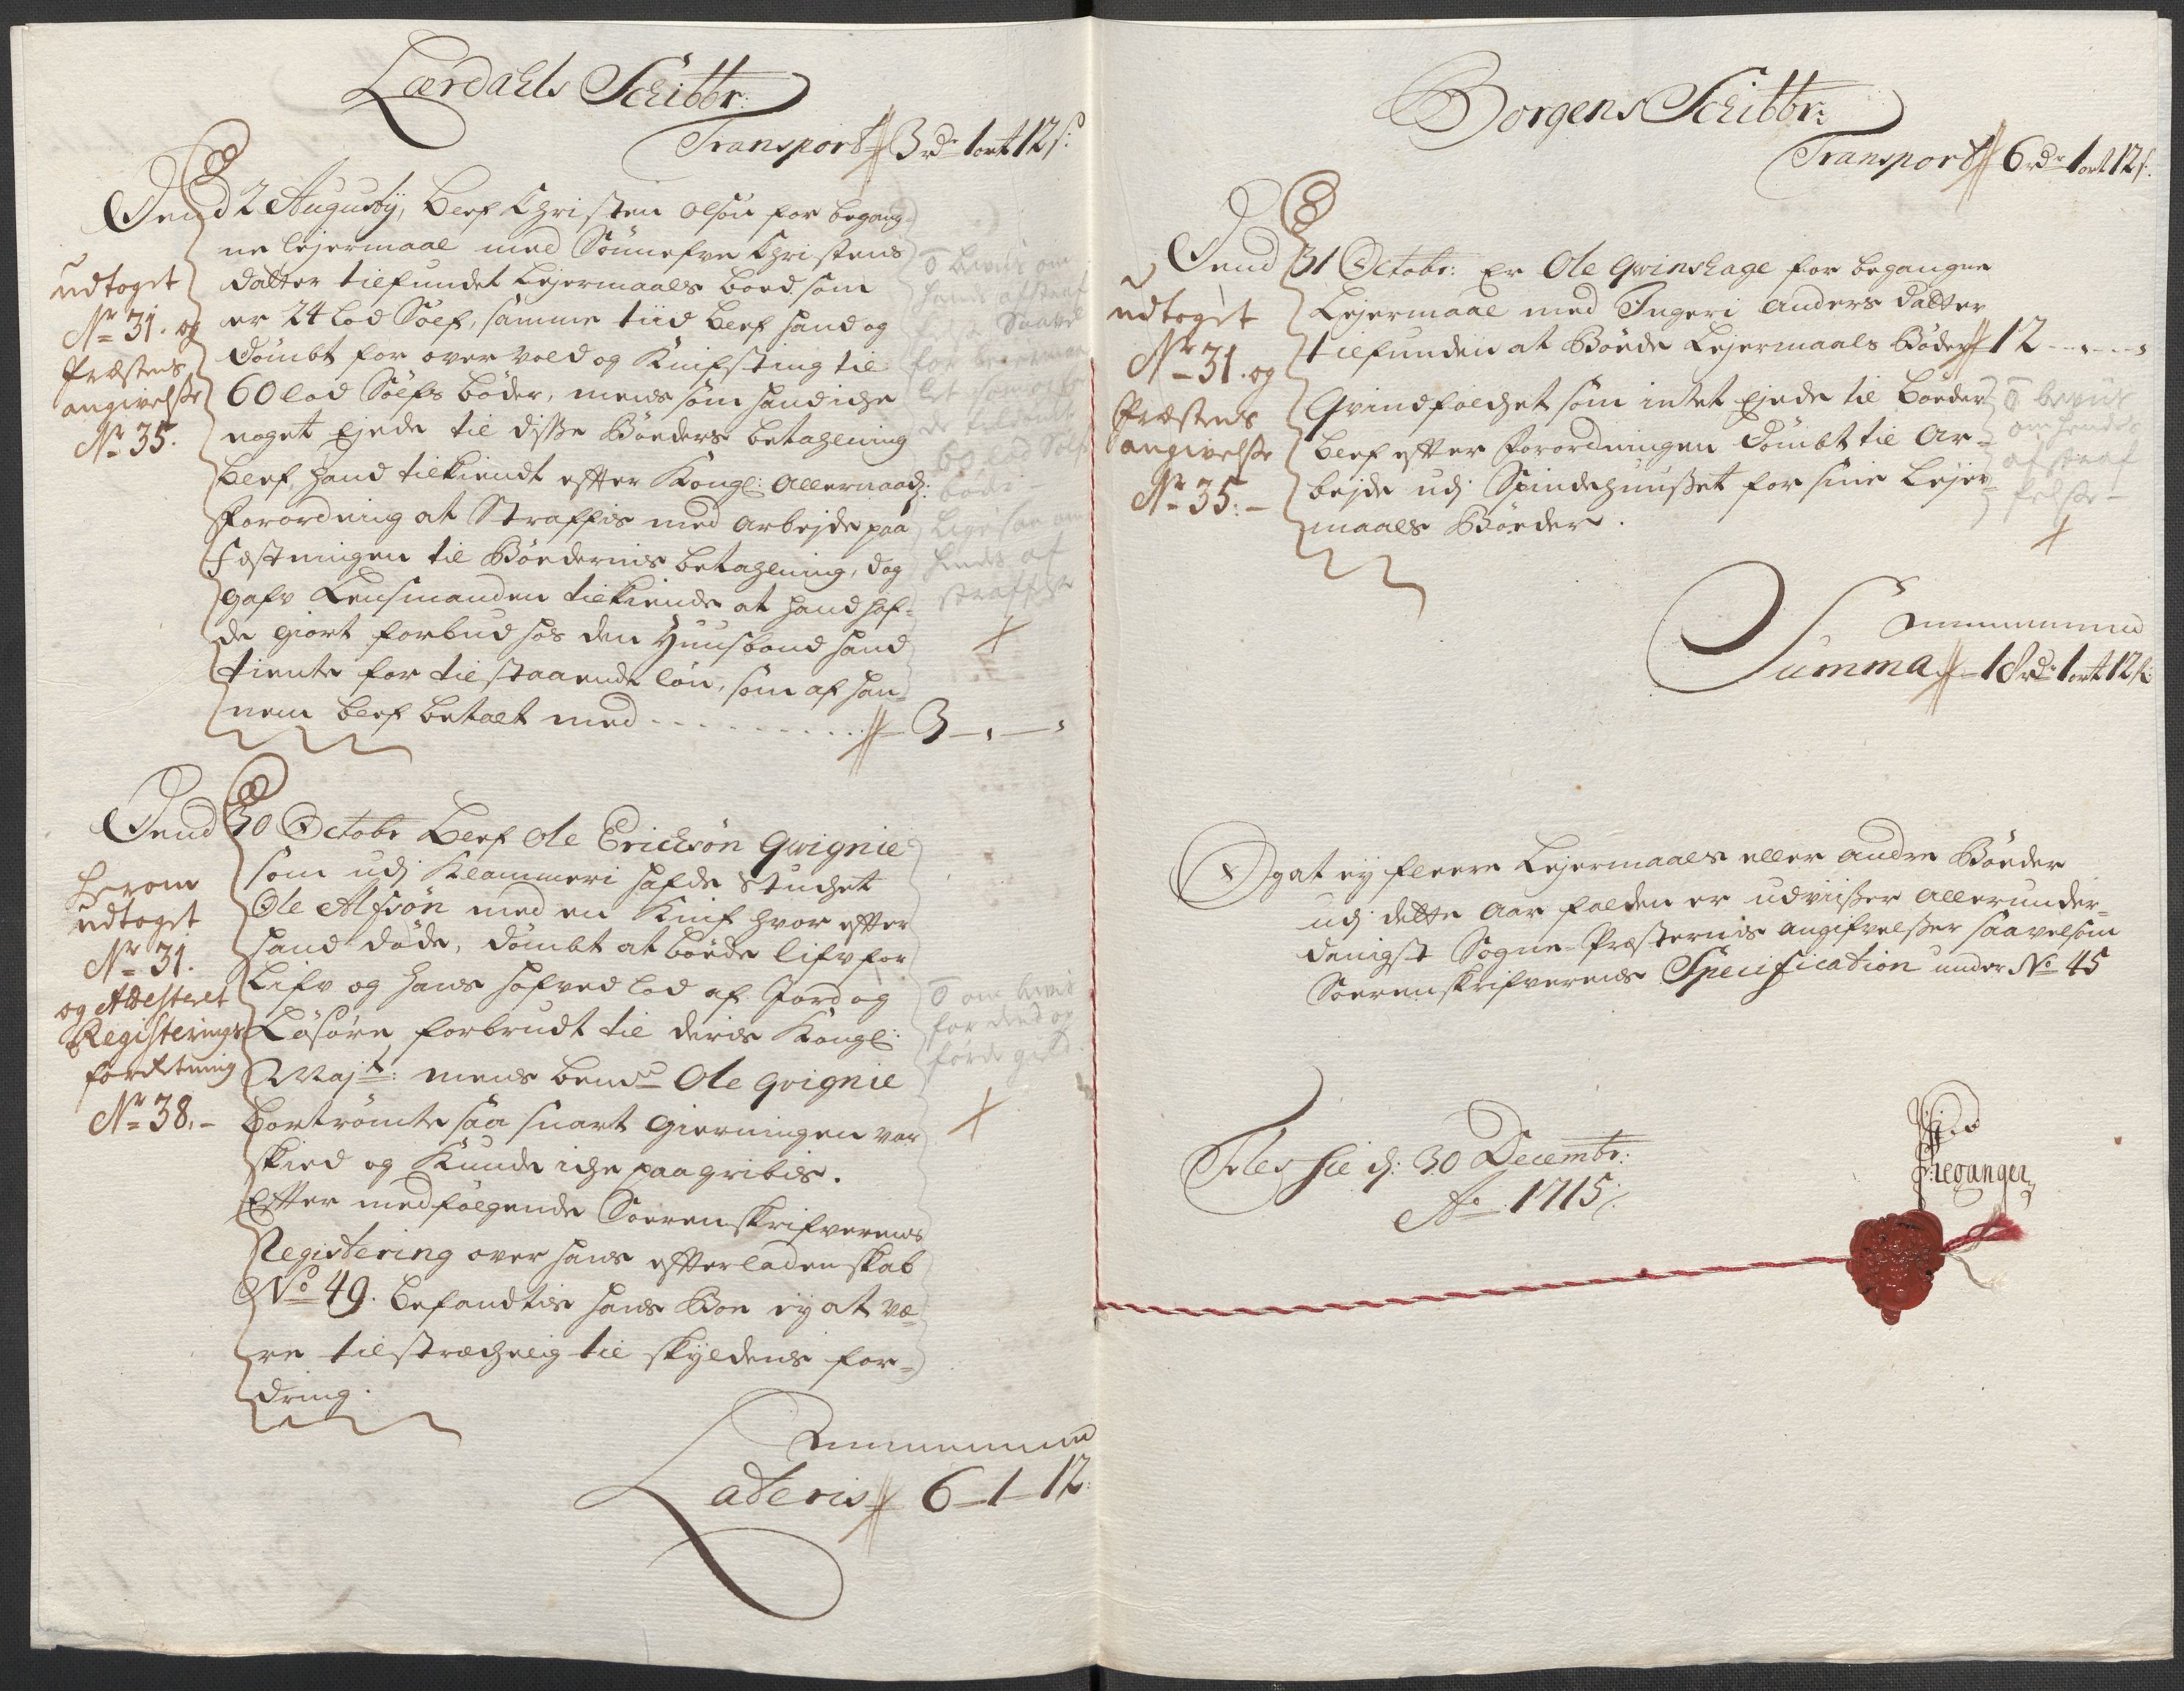 Lærdahls Schibbr:
Transport 3 rd 1 ort 12 s:
Dend 2 Augusty, blef Christen Olsøn for begang-
ne lejermaal med Sønnefve Christens
datter tilfundet Lejermaals boed, som
er 24 lod Sølf, samme tiid blef hand og
dømbt for over vold og Knifsting til
60 lod Sølfs bøder, mens som hand iche
noget Ejede til disse Bøeders betahlning
blef hand tilkiendt efter Kongl: Allernaadg:
Forordning at Straffis med arbejde paa
Fæstningen til Bøedernis betahlning, dog
gafv Lensmanden tilkiende at hand haf-
de giort forbud hos den Huusbond hand
tiente for tilstaaende løn, som af han-
nem blef betalt med - - - 3 - , - ,
udtoget
Nr 31. og
Præstens
angivelsse
Nr 35.
Dend 30 Octobr blef Ole Erichsøn Qvignie
som udj Klammeri hafde stuchet
Ole Alfsøn med en Knif hvor efter
hand døde, dømbt at bøede lif for
Lifv og hans hofved lod af Jord og
Løsøre forbrudt til deris Kongl:
Mayt: mens bemte Ole Qvignie
bortrømte saa snart gierningen var
skied og Kunde iche paagribis.
Efter medfølgende Sorenskrifverens
Registering over hans efterladenskab
No 49. befandtis hans Boe ey at væ-
re tilstræchelig til skyldens for-
dring.
herom
udtoget
Nr 31.
og Attesteret
Registerings
forretning
Nr 38.-
Lateris 6 - 1 - 12:
Borgens Schibbr:
Transport 6 rd 1 ort 12 s:
Dend 31 Octobr: Er Ole Qvinshage for begangne
Lejermaal med Ingeri Anders datter
tilfunden at Bøede Lejermaals Bøder 12 - , - ,
Qvindfolchet som intet Ejede til Bøeder
blef efter Forordningen dømbt til Ar-
bejde udj Spindehuuset for sine Lejer-
maals Bøeder.
udtoget
Nr 31. og
Præstens
angivelsse
Nr 35:-
T beviis
om hendes
afstraf
felsse -
Summa 18 rd 1 ort 12 s:
Og at ey fleere Lejermaals eller andre Bøeder
udj dette Aar falden er udviisser allerunder-
danigst Sogne-Præsternis angifvelsser saavelsom
Sorenskrifverens Specification under No 45
d: 30 Decembr:
Ao 1715